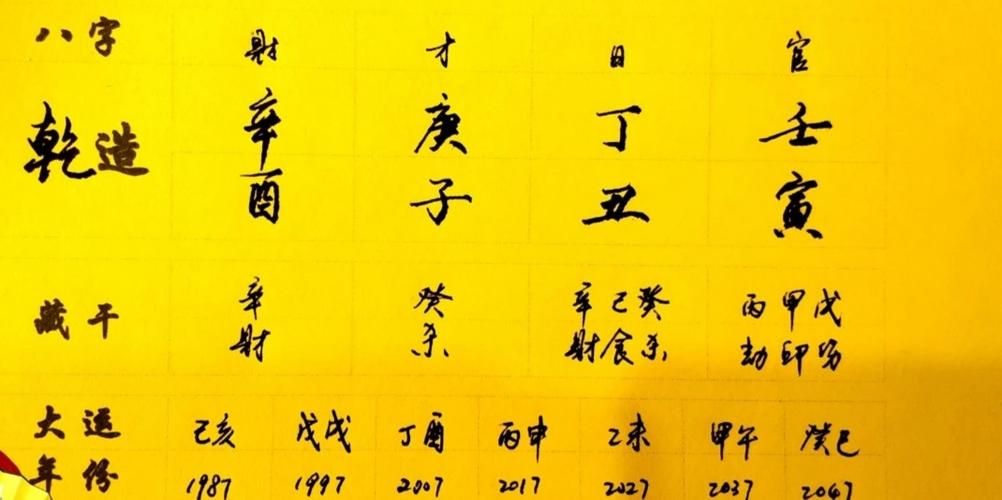 八字 財 才 日 官
乾造 辛 庚 丁 壬
酉 子 丑 寅
藏干 辛 癸 辛己癸 丙甲戊
財 杀 財食杀 劫印伤
大运 己亥 戊戌 丁酉 丙申 乙未 甲午 癸巳
年份 1987 1997 2007 2017 2027 2037 2047